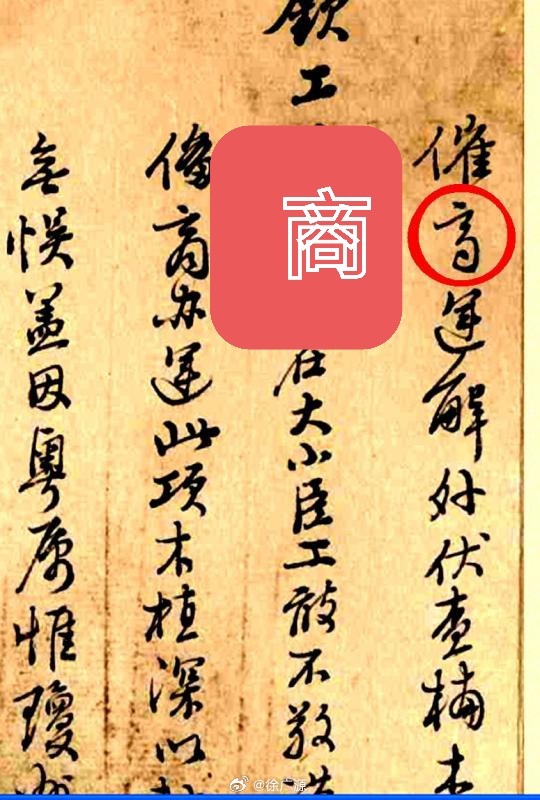 催商運解外伏查楠木
欽工
在大小臣工敢不敬
商办運此項木植深以
無悞盖因粤属惟瓊
商
@徐广源